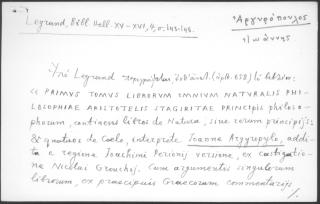 Legrand, Bibl. Hell. XV-XVI, 4, σ. 143-144.
Ἀργυρόπουλος
Ἰωάννης
Legrand (ἀριθ. 658)
"PRIMUS TOMUS LIBRORUM OMNIUM NATURALIS PHI-
LOSOPHIAE ARISTOTELIS STAGIRITAE PRINCIPIS philoso-
phorum, continens libros de Natura, sive rerum principijs:
& quatuor de Coelo, interprete Joanne Argyropylo, addi-
ta e regione Joachimi Perionij versione, ex castigatio-
ne Nicolai Grouchij. Cum argumentis singulorum
librorum, ex praecipuis Graecorum commentarijs